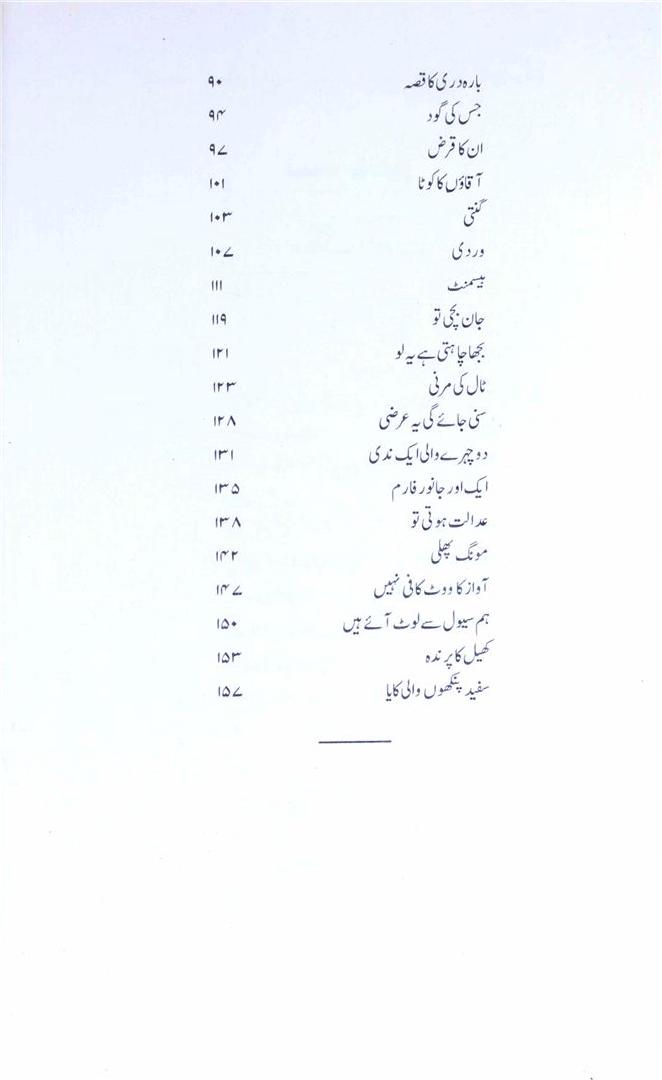 بارہ دری کا قصہ ۹۰
جس کی گود ۹۴
ان کا قرض ۹۷
آقاؤں کا کوٹا ۱۰۱
گنتی ۱۰۳
وردی ۱۰۷
بیسمنٹ ۱۱۱
جان بچی تو ۱۱۹
بجھا چاہتی ہے یہ لو ۱۲۱
ٹال کی مرنی ۱۲۳
سنی جائے گی یہ عرضی ۱۲۸
دو چہرے والی ایک ندی ۱۳۱
ایک اور جانور فارم ۱۳۵
عدالت ہوتی تو ۱۳۸
مونگ پھلی ۱۴۲
آواز کا ووٹ کافی نہیں ۱۴۷
ہم سیول سے لوٹ آئے ہیں ۱۵۰
کھیل کا پرندہ ۱۵۳
سفید پنکھوں والی کایا ۱۵۷